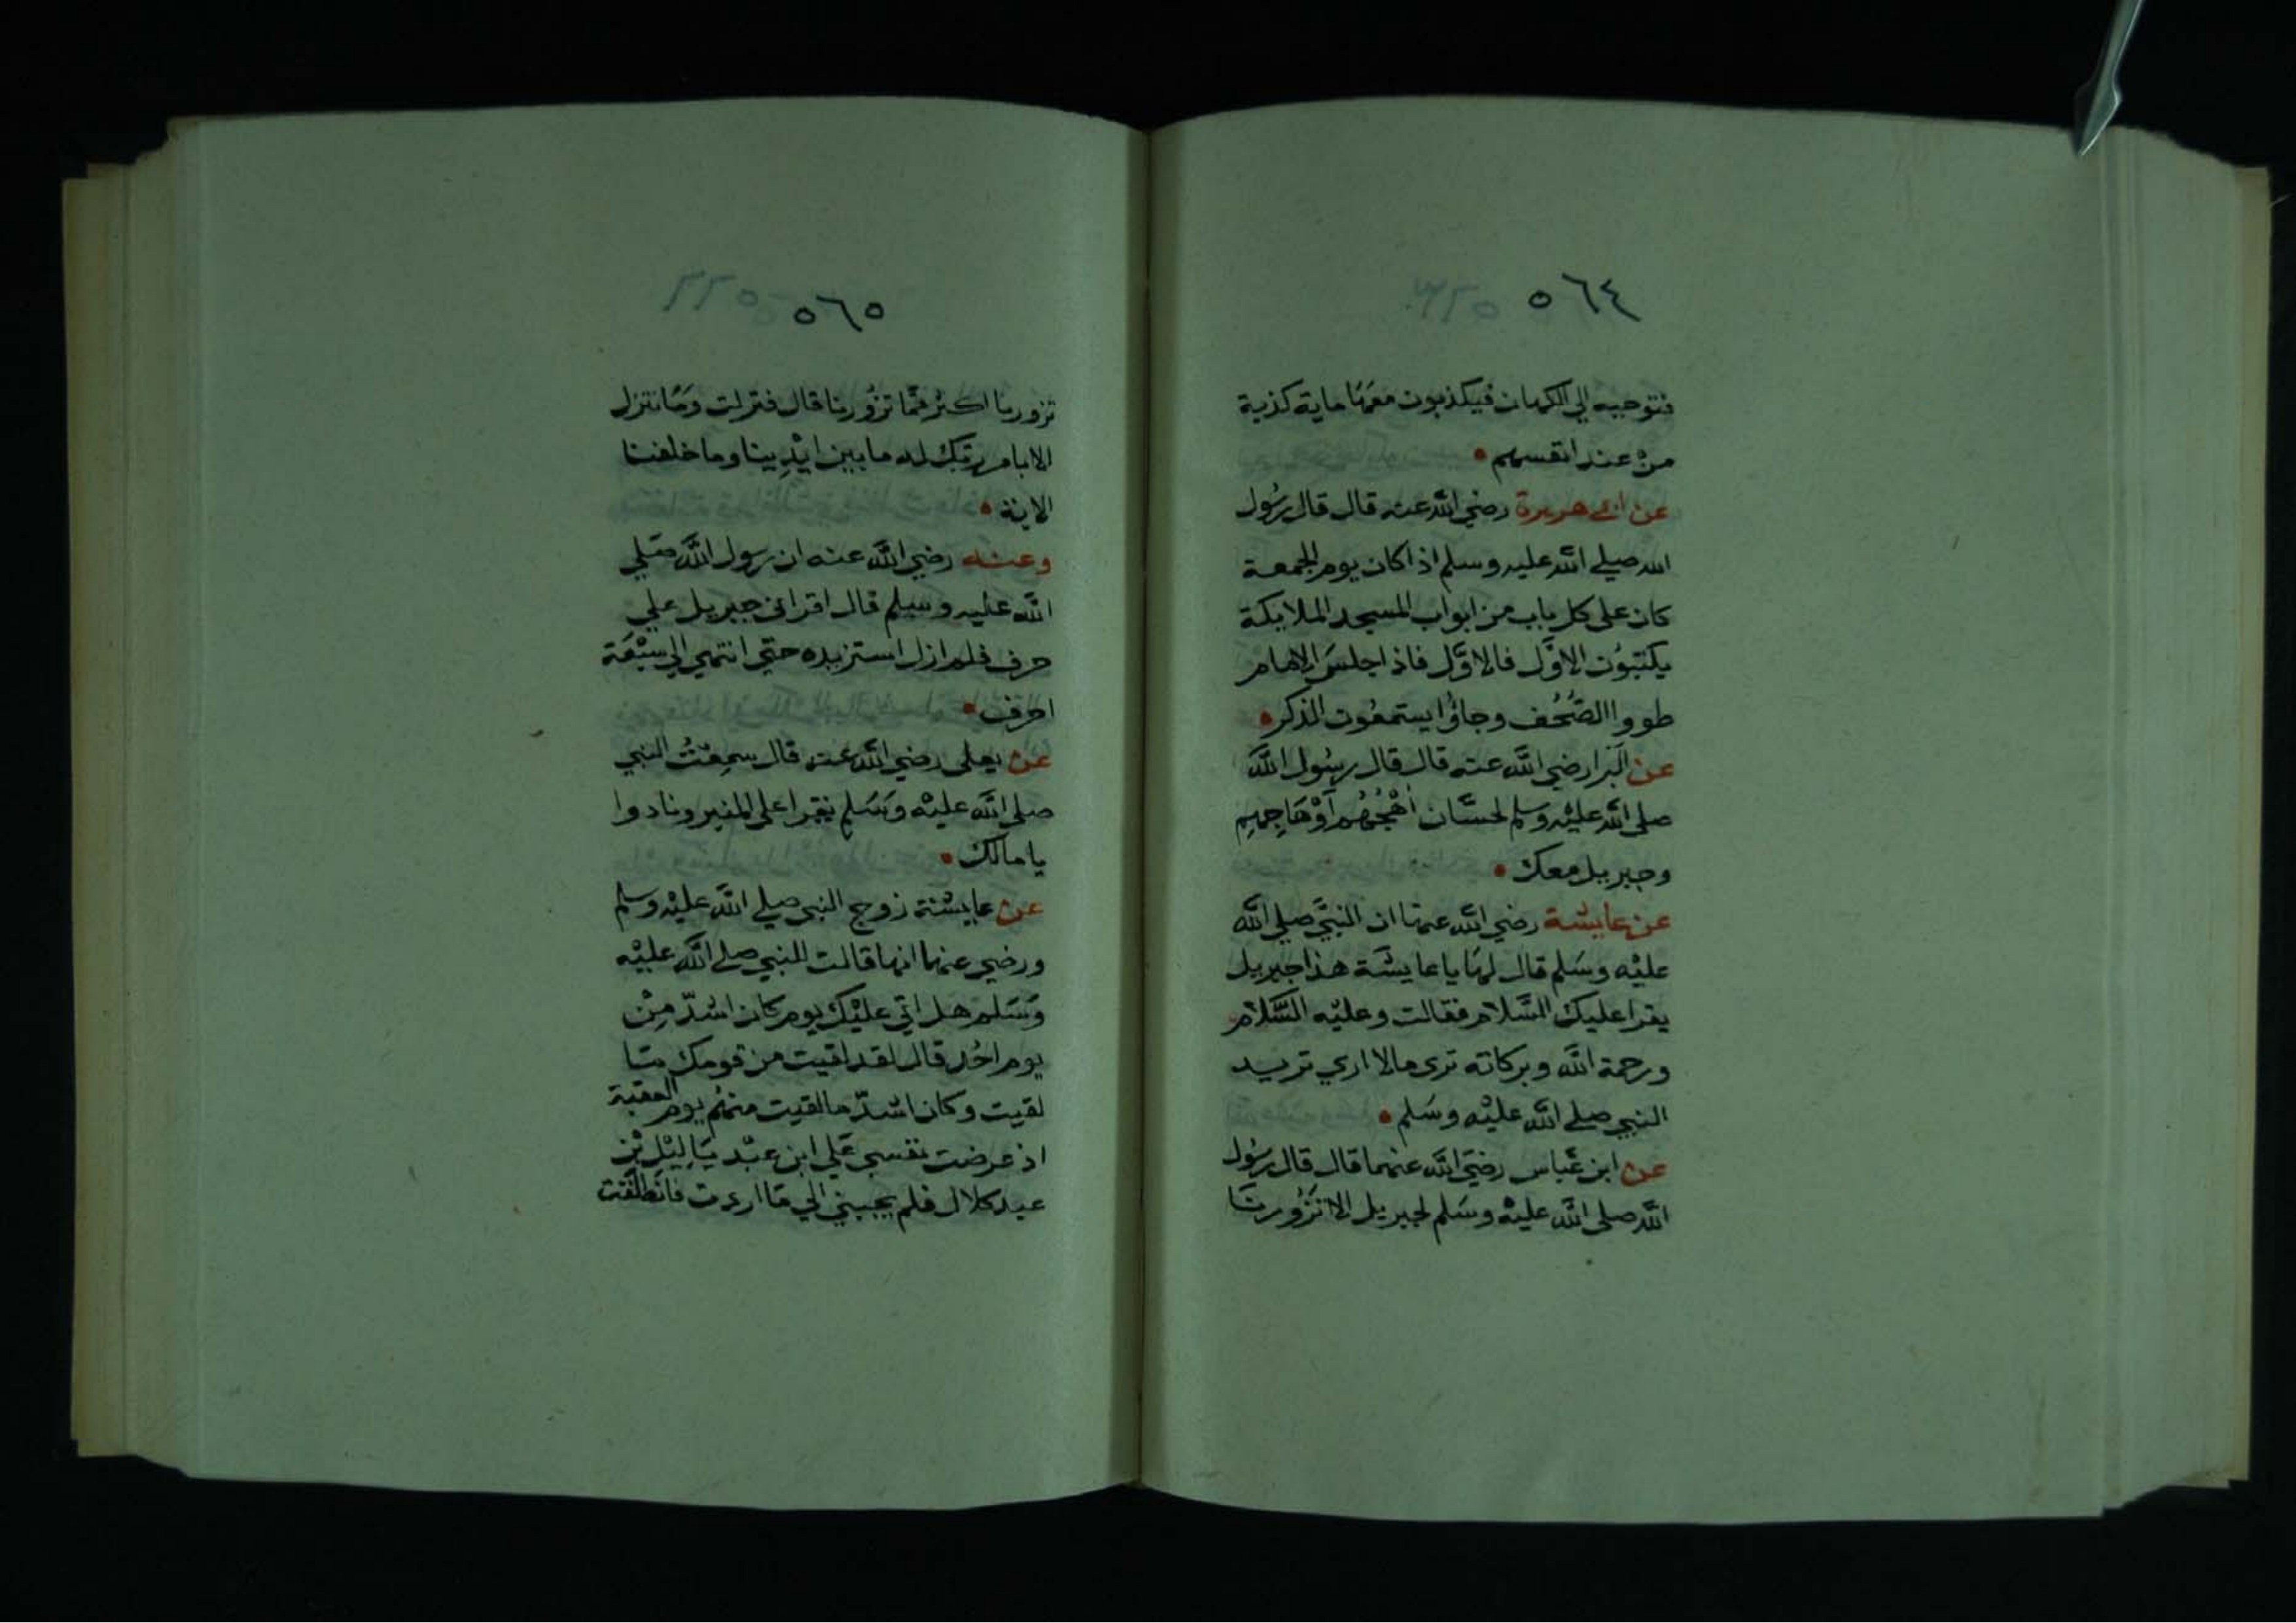 ٥٦٤
فتوحيه الي الكهان فيكذبون معها ماية كذبة
من عند انفسهم
عن ابي هريرة رضي الله عنه قال قال رسول
الله صلي الله عليه وسلم اذا كان يوم الجمعة
كان على كل باب من ابواب المسجد الملايكة
يكتبون الاوَّل فالاوَّل فاذا جلسَ الامام
طووا الصُّحُف وجاؤا يستمعُون الذكر
عن البرا رضي الله عنه قال قال رسُول الله
صلى الله عليْه وسلم لحسَّان اهْجُهُم اَوْهَاجِهِم
وجبريل معك
عن عايشة رضي الله عنها ان النبيَّ صلي الله
عليْه وسَلم قال لهَا يا عايشَة هذا جبريل
يقرا عليك السَّلام فقالت وعليْه السَّلام
ورحمة الله وبركاته ترى مالا اري تريد
النبي صلي الله عليْه وسَلم
عن ابن عَباس رضيَ الله عنهما قال قال رسُول
الله صلى الله عليْه وسَلم لجبريل الا تَزُورنَا
٥٦٥
تزورنا اكثر ممَّا تزُورنا قال فنزلت ومَا نتنزل
الا بامر ربّك له ما بين ايْدِينا وما خلفنا
الاية
وعنه رضي الله عنه ان رسول الله صَلي
الله عليه وسلم قال اقراني جبريل علي
حرف فلم ازل استزيده حتي انتهي الي سبْعَة
احرف
عن يعلى رضي الله عنه قال سمِعْتُ النبي
صلى الله عليْه وسَلم يقرا على المنبر ونادوا
يا مالك
عن عايشة زوج النبي صلي الله عليْه وسلم
ورضي عنها انها قالت للنبي صلي الله عليْه
وسَلم هل اتي عليْك يوم كان اشدّ مِنْ
يوم احُد قال لقد لقيت من قومك مَا
لقيت وكان اشدّ ما لقيت منهُم يوم العقبة
اذ عرضت نفسي عَلي ابن عبْد يَا لِيْل بْن
عبد كلال فلم يجبني الي مَا اردت فانطلقت